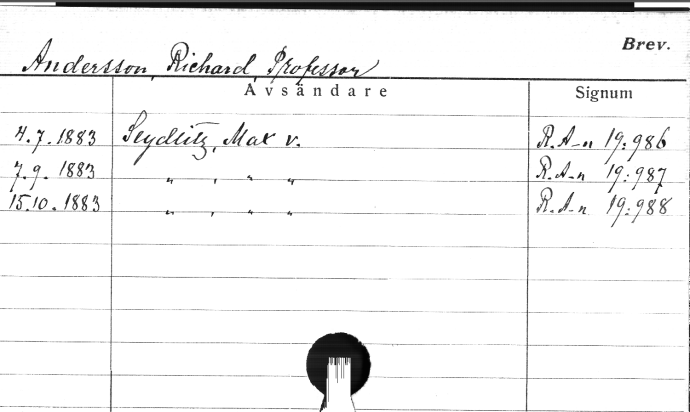 Brev.
Andersson, Richard, Professor
Avsändare Signum
4.7.1883 Seydlitz, Max v. R.A-n 19:986
7.9.1883 „ , „ „ R.A-n 19:987
15.10.1883 „ , „ „ R.A-n 19:988